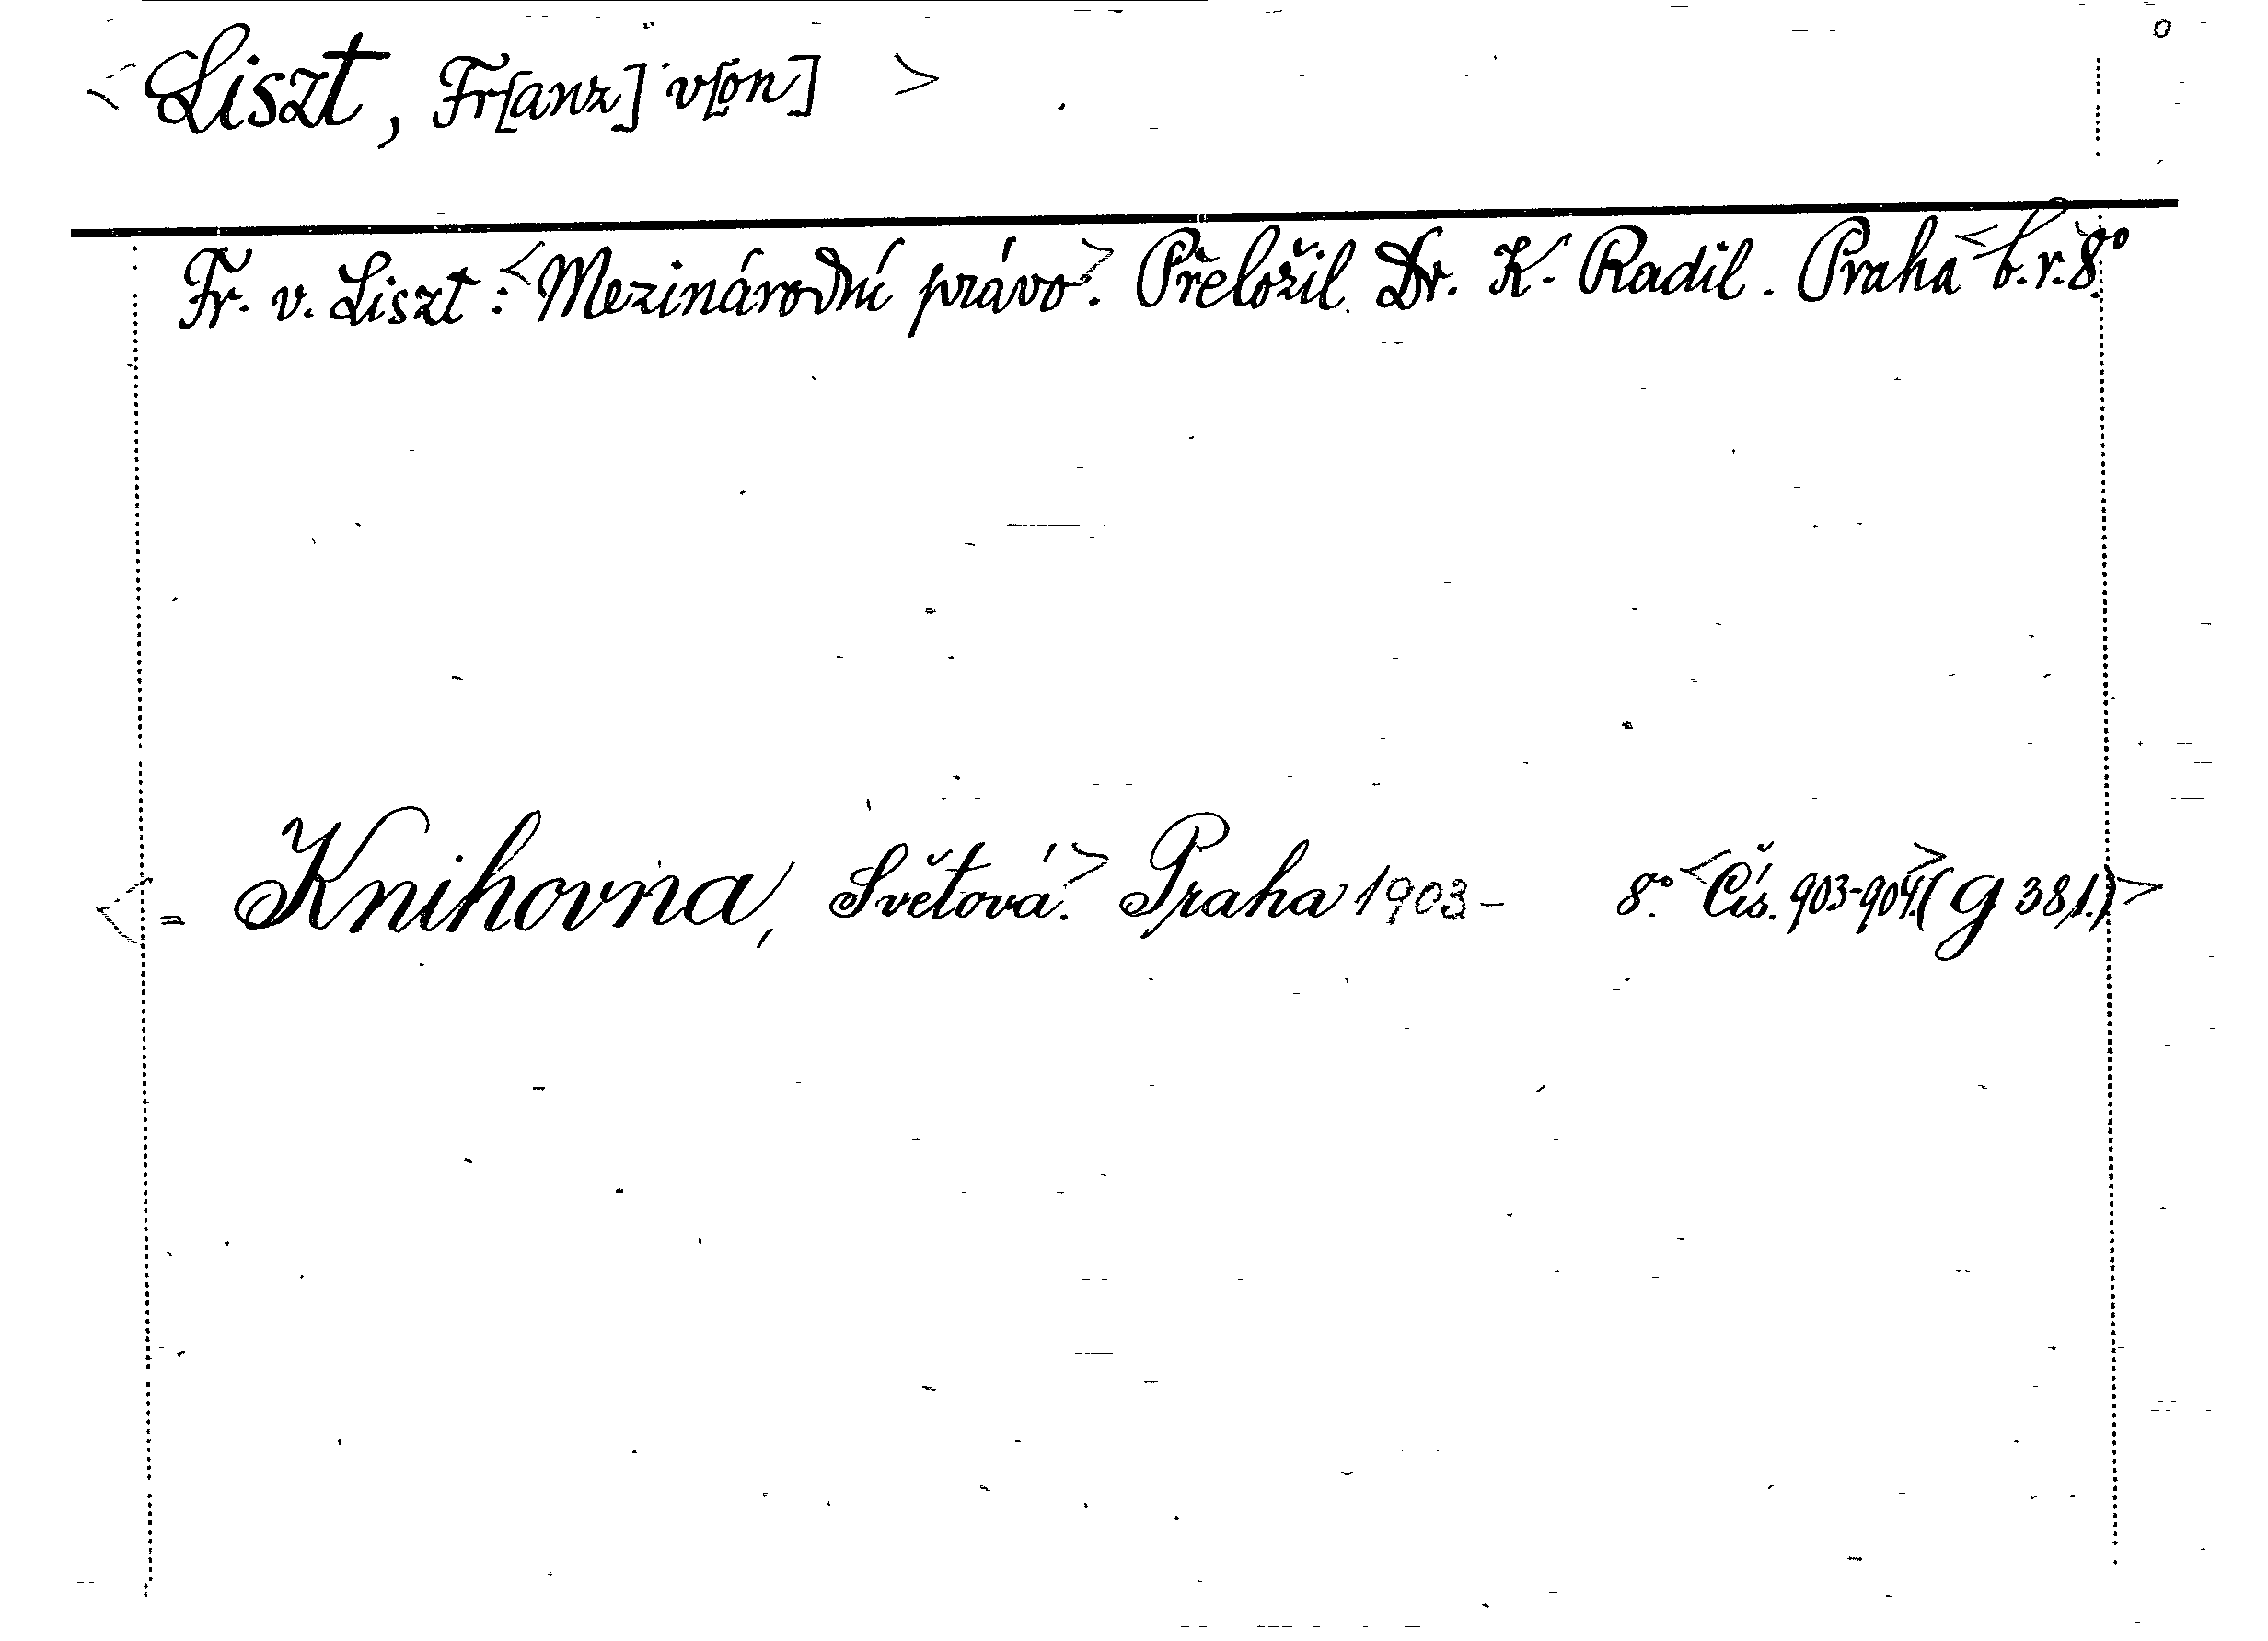 <Liszt, Fr[anz] v[on]>
Fr. v. Liszt: <Mezinárodní právo>. Přeložil Dr. K. Radil. Praha <b. r. 8.°
<= Knihovna, Světová.> Praha 1903- 8.° <Čís. 903-904.> (G 381.)>